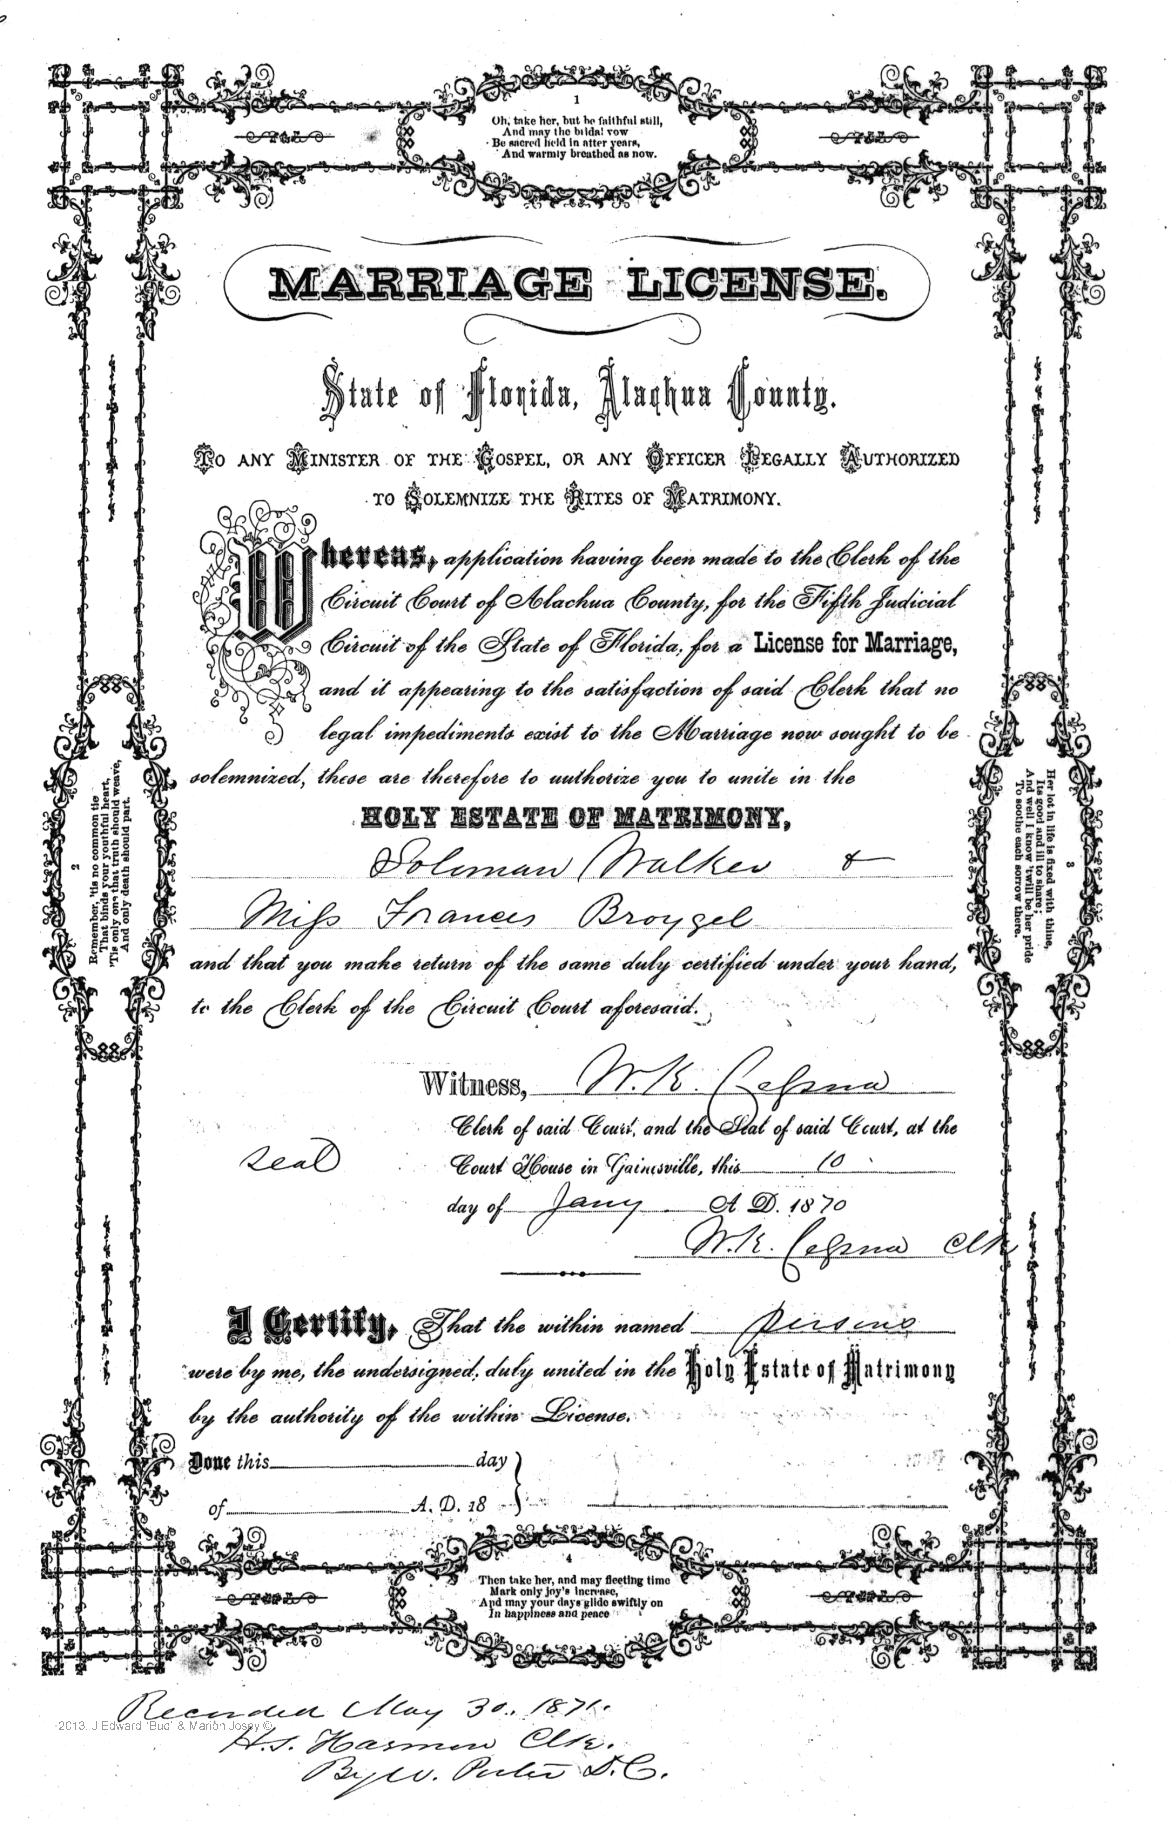 1
Oh, take her, but be faithful still,
And may the bridal vow
Be sacred held in after years,
And warmly breathed as now.
MARRIAGE LICENSE.
State of Florida, Alachua County.
TO ANY MINISTER OF THE GOSPEL, OR ANY OFFICER LEGALLY AUTHORIZED
TO SOLEMNIZE THE RITES OF MATRIMONY.
Whereas, application having been made to the Clerk of the
Circuit Court of Alachua County, for the Fifth Judicial
Circuit of the State of Florida, for a License for Marriage,
and it appearing to the satisfaction of said Clerk that no
legal impediments exist to the Marriage now sought to be
solemnized, these are therefore to authorize you to unite in the
HOLY ESTATE OF MATRIMONY,
Soloman Walker &
Miss Frances Broygel
and that you make return of the same duly certified under your hand,
to the Clerk of the Circuit Court aforesaid.
2
Remember, 'tis no common tie
That binds your youthful heart,
'Tis only one that truth should weave,
And only death should part.
3
Her lot in life is fixed with thine,
Its good and ill to share;
And well I know 'twill be her pride
To soothe each sorrow there.
Witness, W. K. Cessna
Clerk of said Court, and the Seal of said Court, at the
seal
Court House in Gainesville, this 10
day of Jany A. D. 1870
W. K. Cessna Clk
I Certify, That the within named persons
were by me, the undersigned, duly united in the Holy Estate of Matrimony
by the authority of the within License.
Done this day
of A. D. 18
4
Then take her, and may fleeting time
Mark only joy's increase,
And may your days glide swiftly on
In happiness and peace
Recorded May 30, 1871.
2013. J Edward 'Bud' & Marion Josey ©
H. S. Harmon Clk.
By W. Porter D. C.